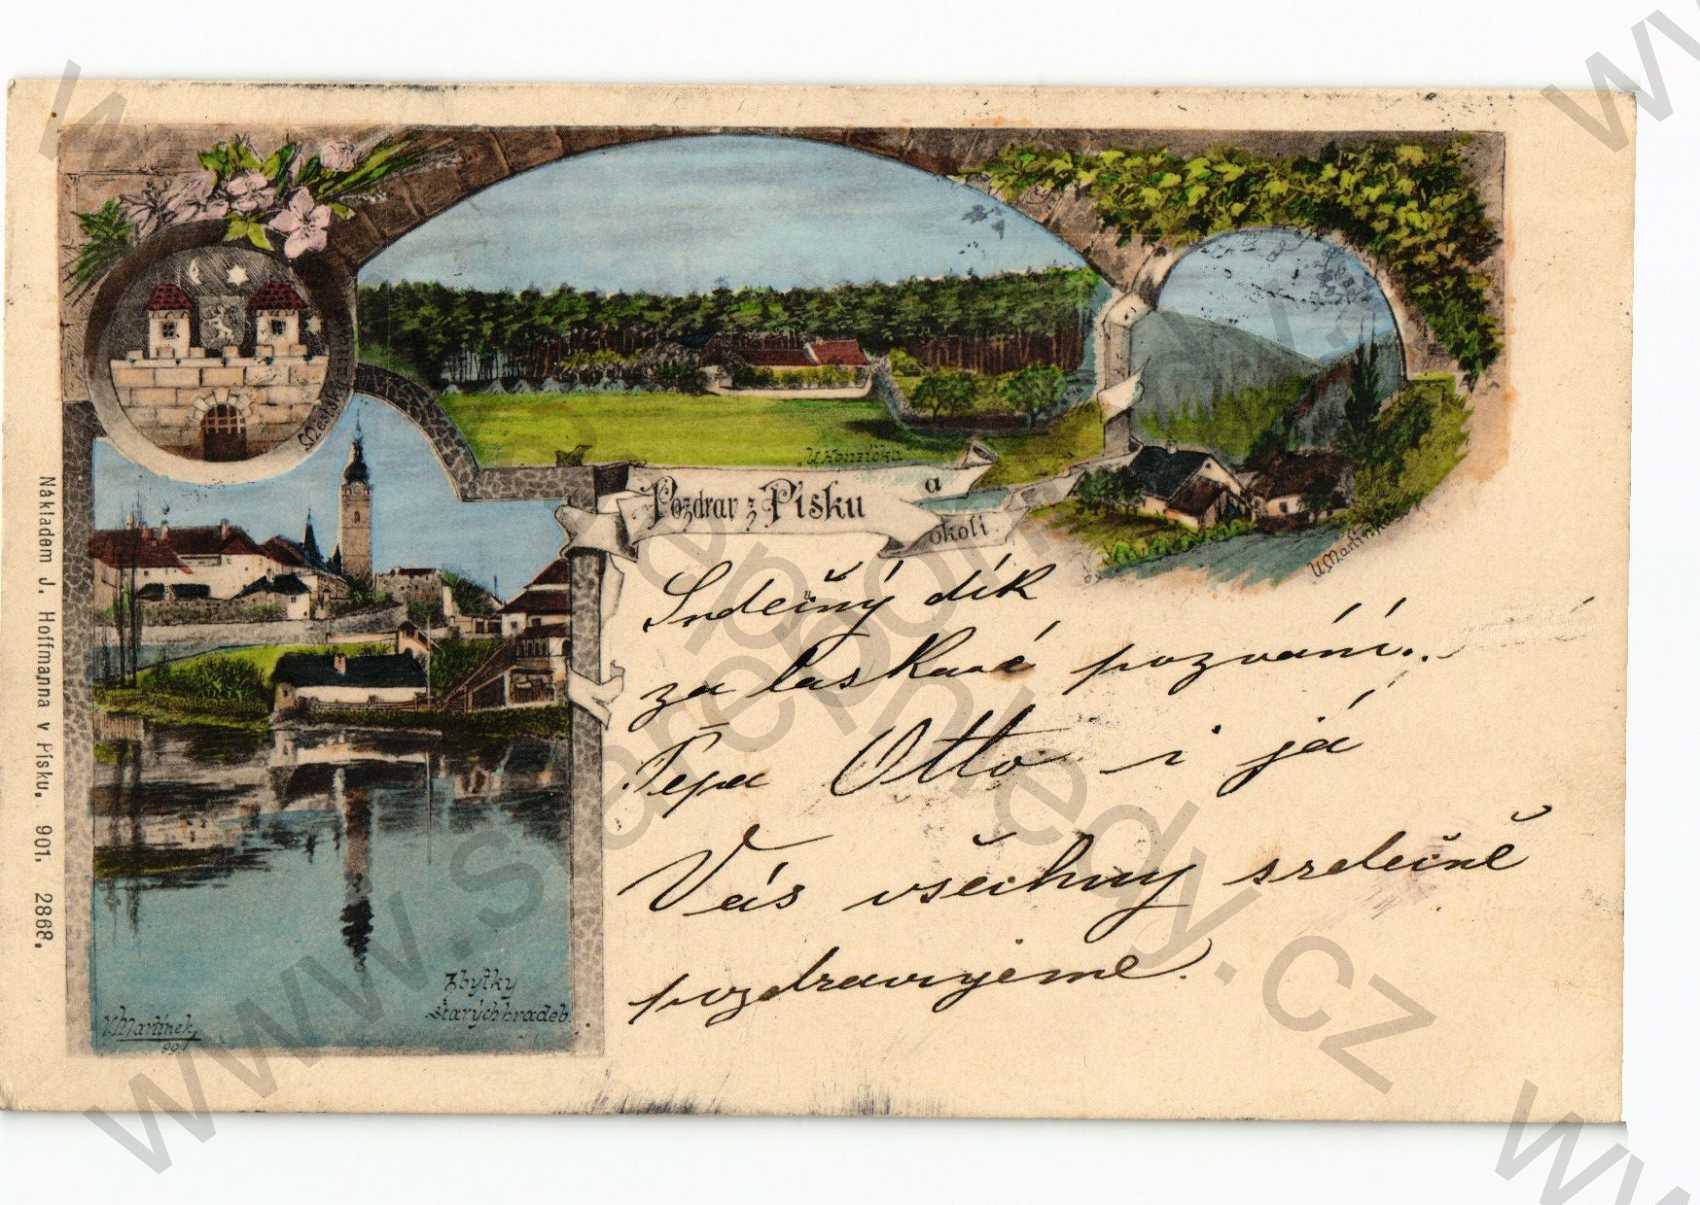 Pozdrav z Písku
a
okolí
U Honzíčka
U Martínka
Zbytky
starých hradeb.
V. Martínek
901
Srdečný dík
za laskavé pozvání.
Pepa Otto i já
Vás všechny srdečně
pozdravujeme.
Nákladem J. Hoffmanna v Písku. 901. 2868.
www.starepohledy.cz